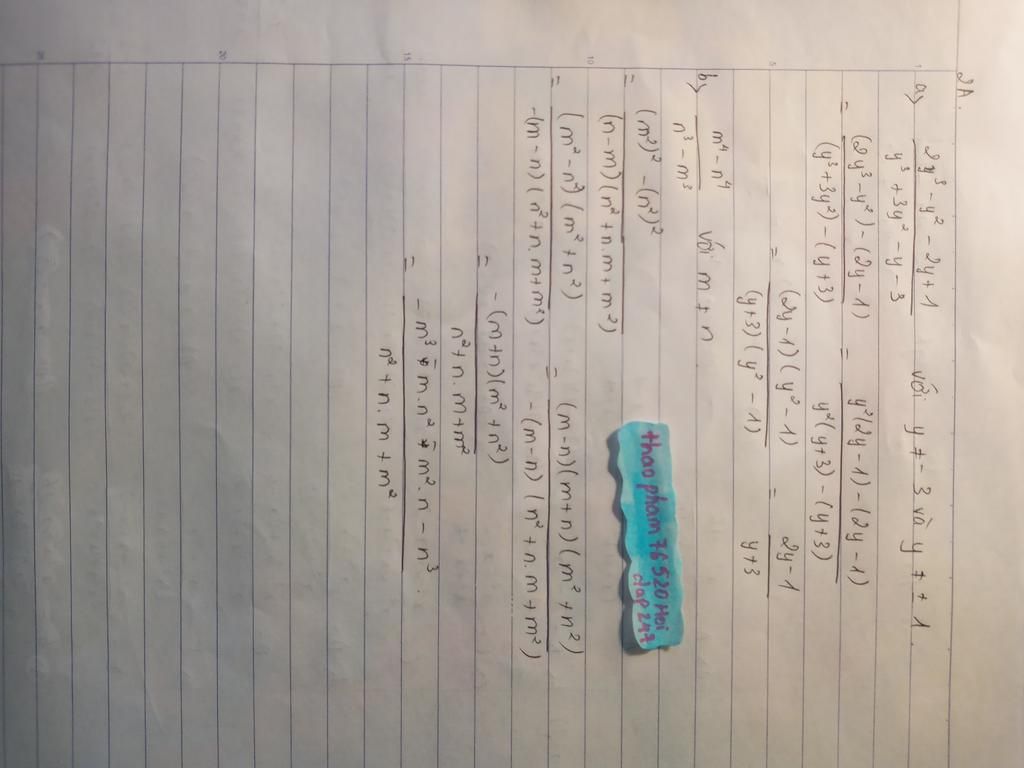 2A.
a) (2y³ - y² - 2y + 1)/(y³ + 3y² - y - 3) với y ≠ - 3 và y ≠ ± 1.
= ((2y³ - y²) - (2y - 1))/((y³ + 3y²) - (y + 3)) = (y²(2y - 1) - (2y - 1))/(y²(y + 3) - (y + 3))
= ((2y - 1)(y² - 1))/((y + 3)(y² - 1)) = (2y - 1)/(y + 3)
b) (m⁴ - n⁴)/(n³ - m³) với m ≠ n
= ((m²)² - (n²)²)/((n - m)(n² + n.m + m²))
= ((m² - n²)(m² + n²))/(-(m - n)(n² + n.m + m²)) = ((m - n)(m + n)(m² + n²))/(-(m - n)(n² + n.m + m²))
= (-(m + n)(m² + n²))/(n² + n.m + m²)
= (- m³ - m.n² - m².n - n³)/(n² + n.m + m²)
thaopham76520 Hoi
dap247